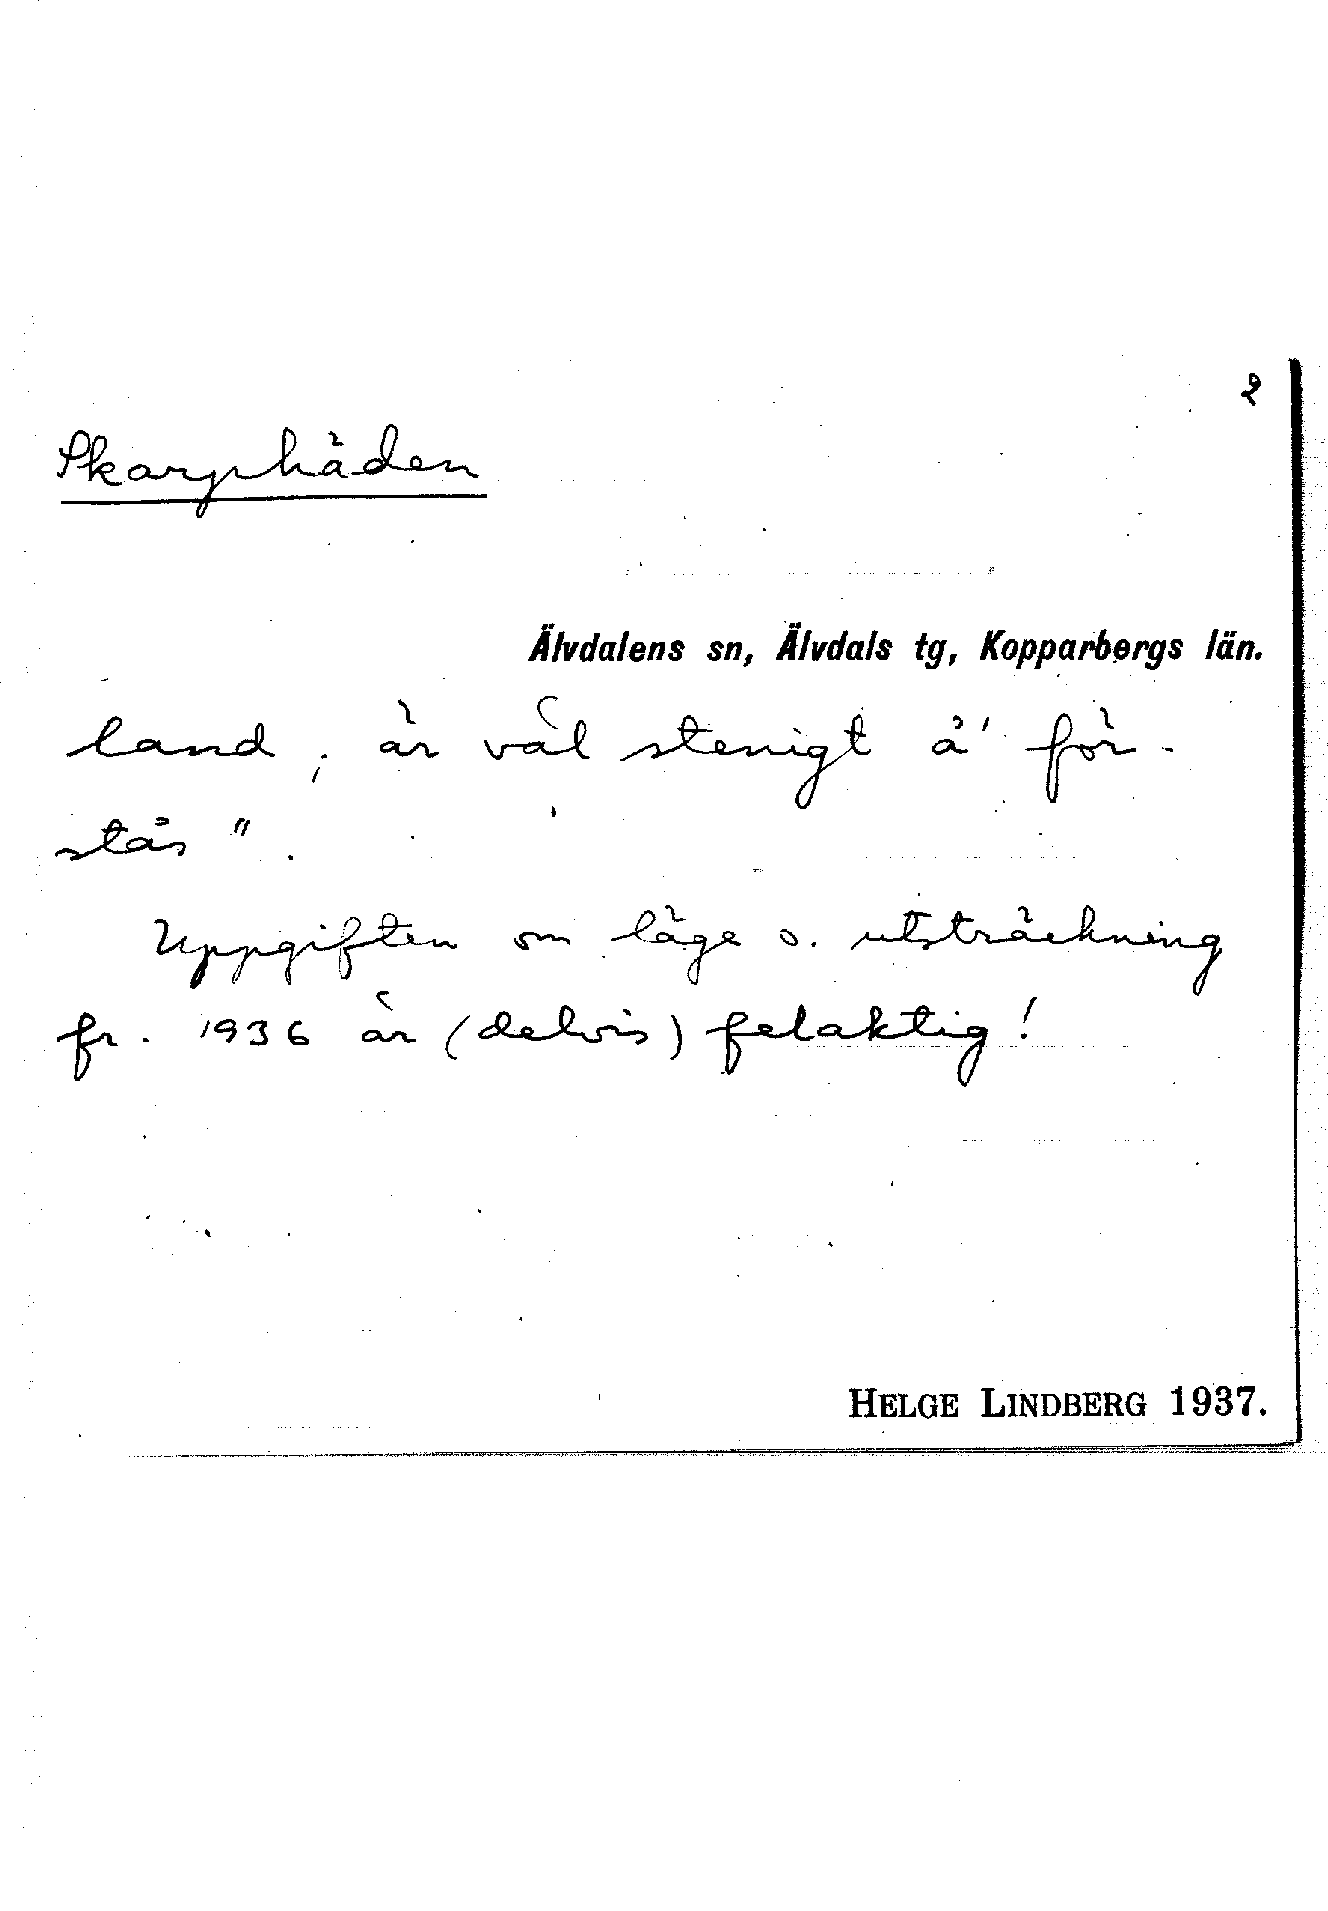 2
Skarphäden
Älvdalens sn, Älvdals tg, Kopparbergs län.
land, är väl stenigt å' för-
stås".
Uppgiften om läge o. utsträckning
fr. 1936 är (delvis) felaktig!
HELGE LINDBERG 1937.